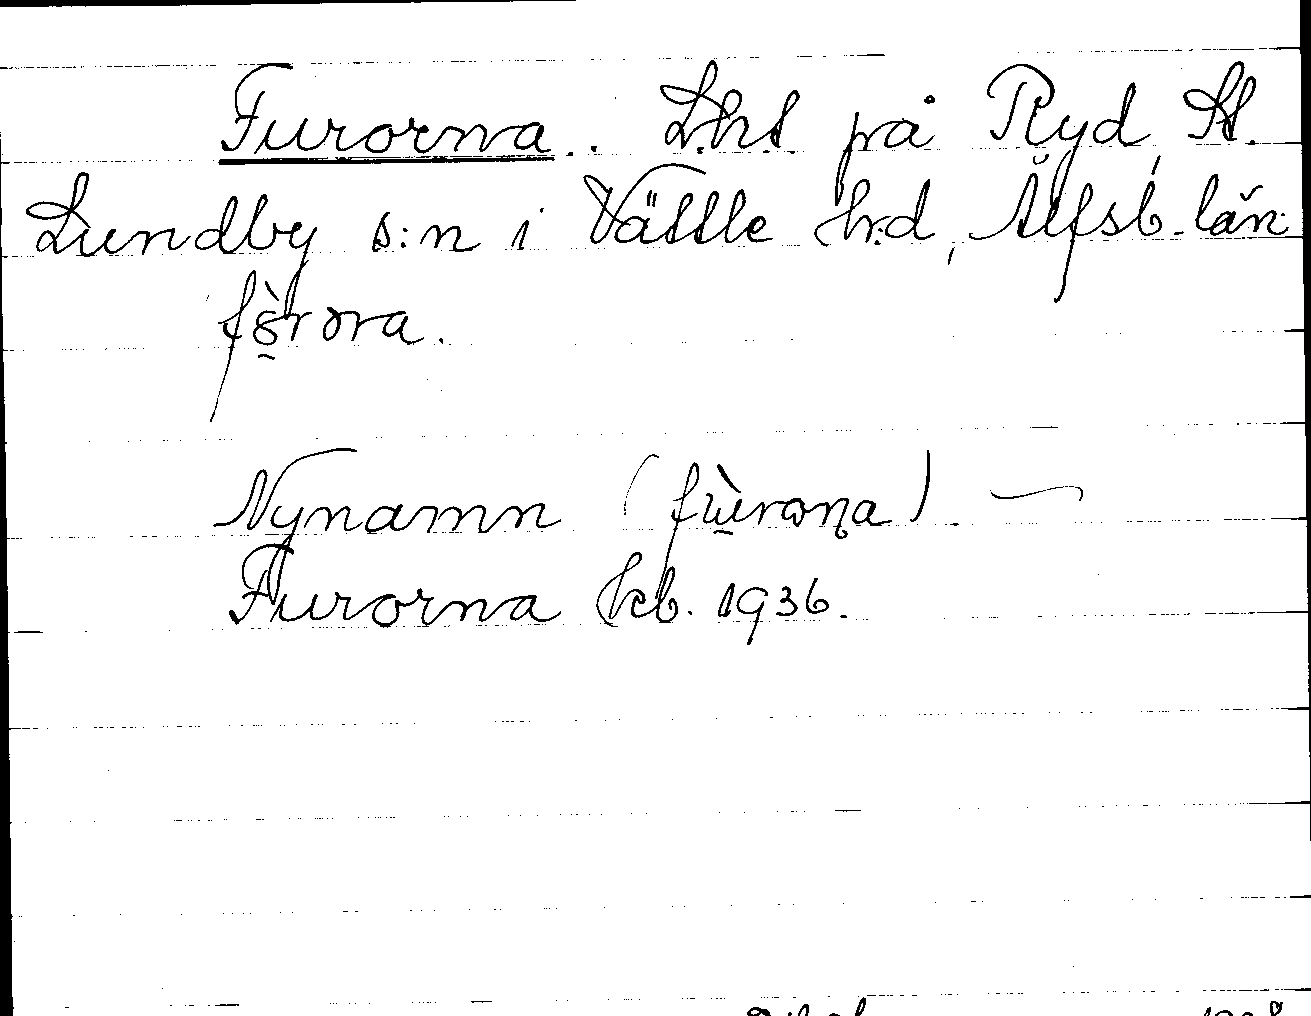 Furorna.. L.ht på Ryd, St.
Lundby s:n i Vättle h:d, Älfsb. län.
fö̀rora.
Nynamn (fùroɳa). —
Furorna kb. 1936.